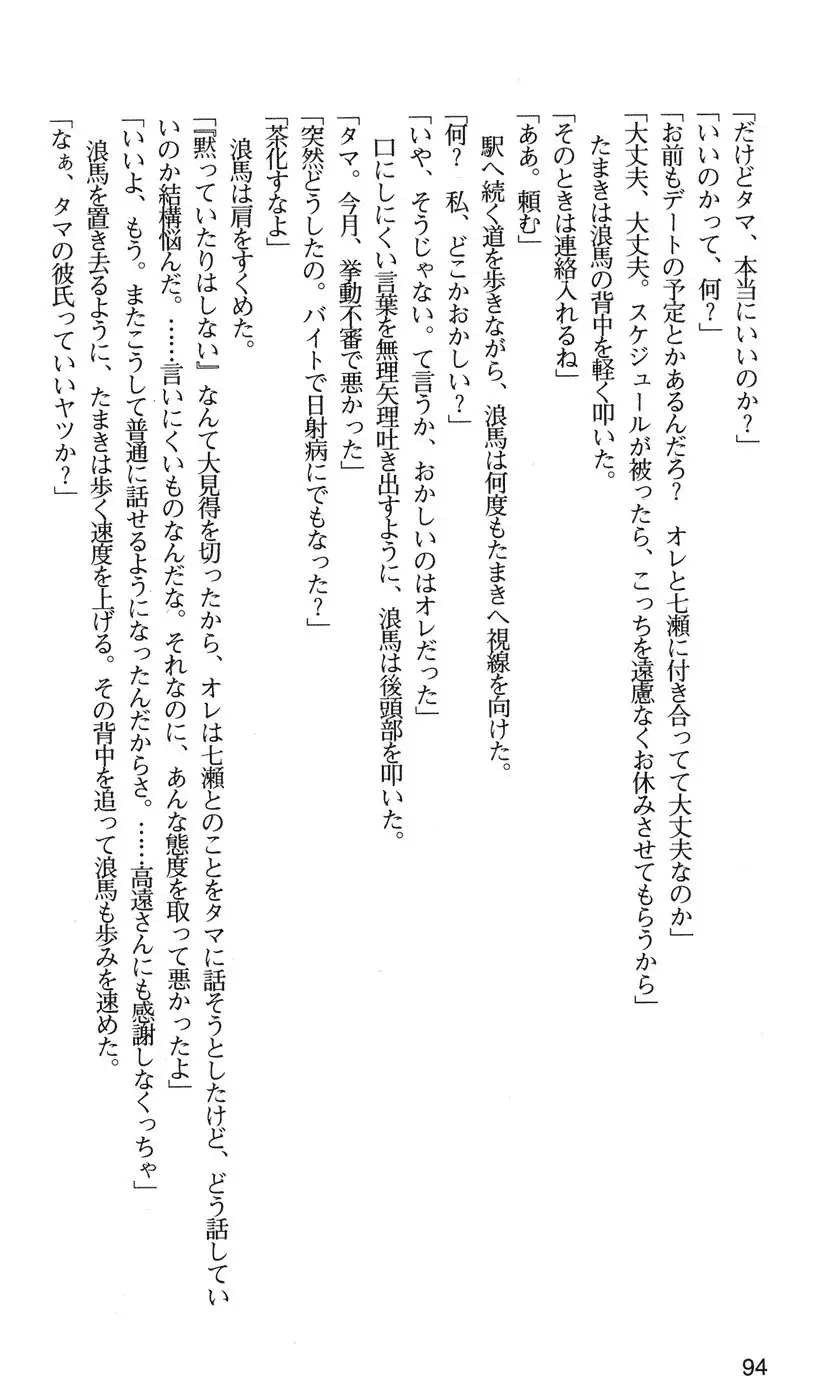 「だけどタマ、本当にいいのか？」
「いいのかって、何？」
「お前もデートの予定とかあるんだろ？　オレと七瀬に付き合ってて大丈夫なのか」
「大丈夫、大丈夫。スケジュールが被ったら、こっちを遠慮なくお休みさせてもらうから」
たまきは浪馬の背中を軽く叩いた。
「そのときは連絡入れるね」
「ああ。頼む」
駅へ続く道を歩きながら、浪馬は何度もたまきへ視線を向けた。
「何？　私、どこかおかしい？」
「いや、そうじゃない。て言うか、おかしいのはオレだった」
口にしにくい言葉を無理矢理吐き出すように、浪馬は後頭部を叩いた。
「タマ。今月、挙動不審で悪かった」
「突然どうしたの。バイトで日射病にでもなった？」
「茶化すなよ」
浪馬は肩をすくめた。
「『黙っていたりはしない』なんて大見得を切ったから、オレは七瀬とのことをタマに話そうとしたけど、どう話してい
いのか結構悩んだ。……言いにくいものなんだな。それなのに、あんな態度を取って悪かったよ」
「いいよ、もう。またこうして普通に話せるようになったんだからさ。……高遠さんにも感謝しなくっちゃ」
浪馬を置き去るように、たまきは歩く速度を上げる。その背中を追って浪馬も歩みを速めた。
「なぁ、タマの彼氏っていいヤツか？」
94